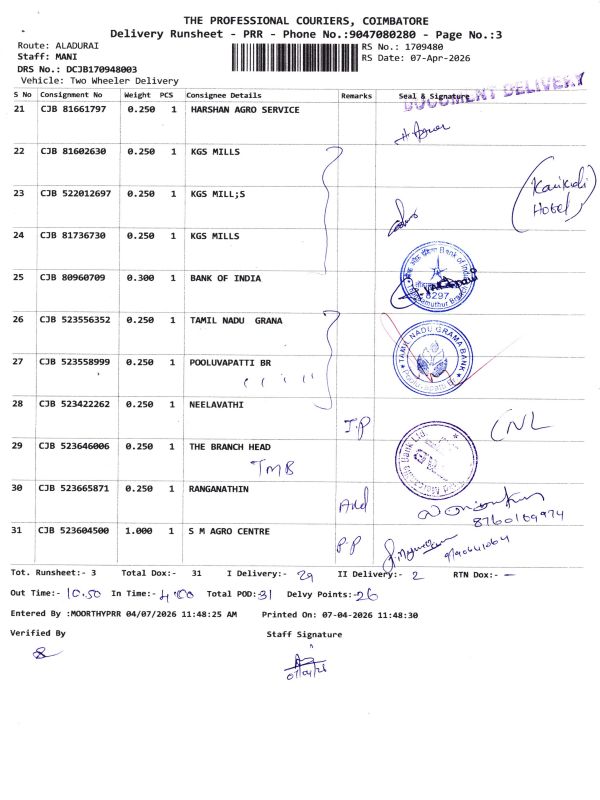 THE PROFESSIONAL COURIERS, COIMBATORE
Delivery Runsheet - PRR - Phone No.:9047080280 - Page No.:3
Route: ALADURAI
RS No.: 1709480
Staff: MANI
RS Date: 07-Apr-2026
DRS No.: DCJB170948003
Vehicle: Two Wheeler Delivery
DOCUMENT DELIVERY
S No Consignment No Weight PCS Consignee Details Remarks Seal & Signature
21 CJB 81661797 0.250 1 HARSHAN AGRO SERVICE
22 CJB 81602630 0.250 1 KGS MILLS
23 CJB 522012697 0.250 1 KGS MILL;S
Hotel
24 CJB 81736730 0.250 1 KGS MILLS
25 CJB 80960709 0.300 1 BANK OF INDIA
Bank of India
8297
26 CJB 523556352 0.250 1 TAMIL NADU GRANA
TAMIL NADU GRAMA BANK
27 CJB 523558999 0.250 1 POOLUVAPATTI BR
28 CJB 523422262 0.250 1 NEELAVATHI
I.P
CNL
29 CJB 523646006 0.250 1 THE BRANCH HEAD
TMB
Bank Ltd.
30 CJB 523665871 0.250 1 RANGANATHIN
8760169974
31 CJB 523604500 1.000 1 S M AGRO CENTRE
P.P
Tot. Runsheet:- 3 Total Dox:- 31 I Delivery:- 29 II Delivery:- 2 RTN Dox:- —
Out Time:- 10.50 In Time:- 4.00 Total POD:31 Delvy Points:-26
Entered By :MOORTHYPRR 04/07/2026 11:48:25 AM Printed On: 07-04-2026 11:48:30
Verified By Staff Signature
07/04/26